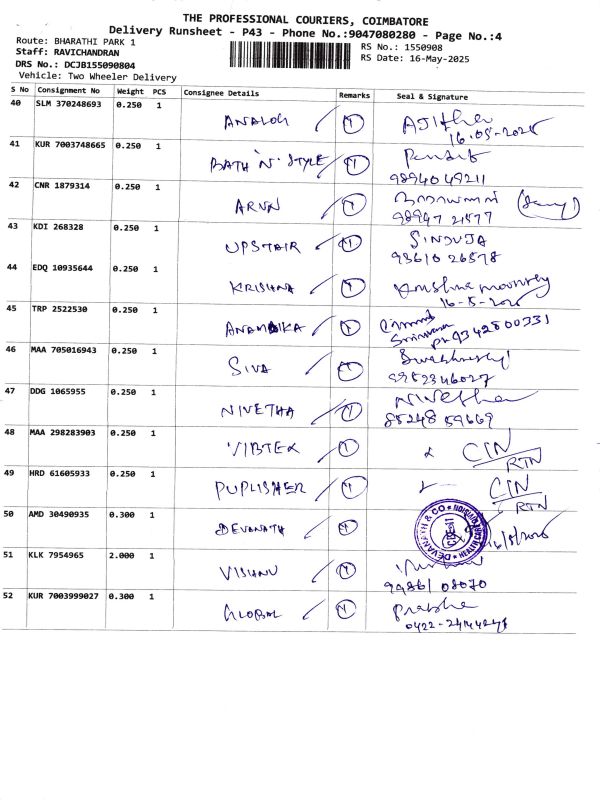 THE PROFESSIONAL COURIERS, COIMBATORE
Delivery Runsheet - P43 - Phone No.:9047080280 - Page No.:4
Route: BHARATHI PARK 1
RS No.: 1550908
Staff: RAVICHANDRAN
RS Date: 16-May-2025
DRS No.: DCJB155090804
Vehicle: Two Wheeler Delivery
S No Consignment No Weight PCS Consignee Details Remarks Seal & Signature
40 SLM 370248693 0.250 1 ANALOG Ajitha
16.05-2025
41 KUR 7003748665 0.250 1 BATH 'N' STYLE
98940 49211
42 CNR 1879314 0.250 1 ARUN
98947 21577
43 KDI 268328 0.250 1 UPSTAIR SINDUJA
93610 26578
44 EDQ 10935644 0.250 1 KRISHNA
16-5-2025
45 TRP 2522530 0.250 1 ANAMIKA
Ph 9342800331
46 MAA 705016943 0.250 1 SIVA
9952346027
47 DDG 1065955 0.250 1 NIVETHA Nivetha
85248 59669
48 MAA 298283903 0.250 1 VIBTEX CIN
RTN
49 HRD 61605933 0.250 1 PUPLISHER CIN
RTN
50 AMD 30490935 0.300 1 DEVANATH DEVANATH & CO 16/5/2025
51 KLK 7954965 2.000 1 VISHNU
99861 08070
52 KUR 7003999027 0.300 1 GLOBAL Prabha